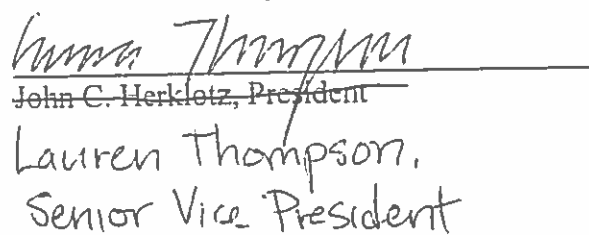 Lauren Thompson
John C. Herklotz, President
Lauren Thompson,
Senior Vice President